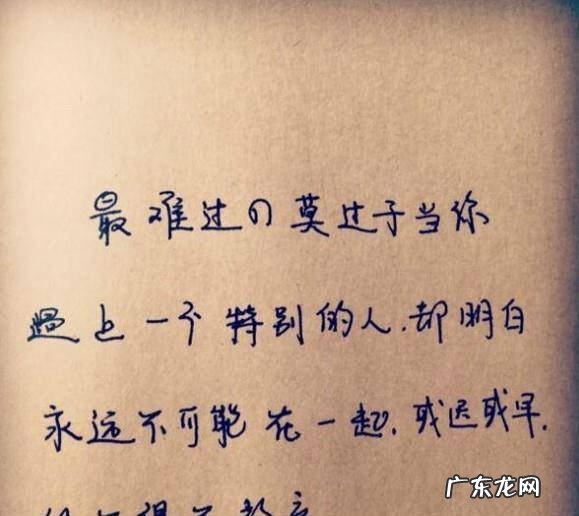 最难过的莫过于当你
遇上一个特别的人.却明白
永远不可能在一起.或迟或早.
你不得不放弃
广东龙网